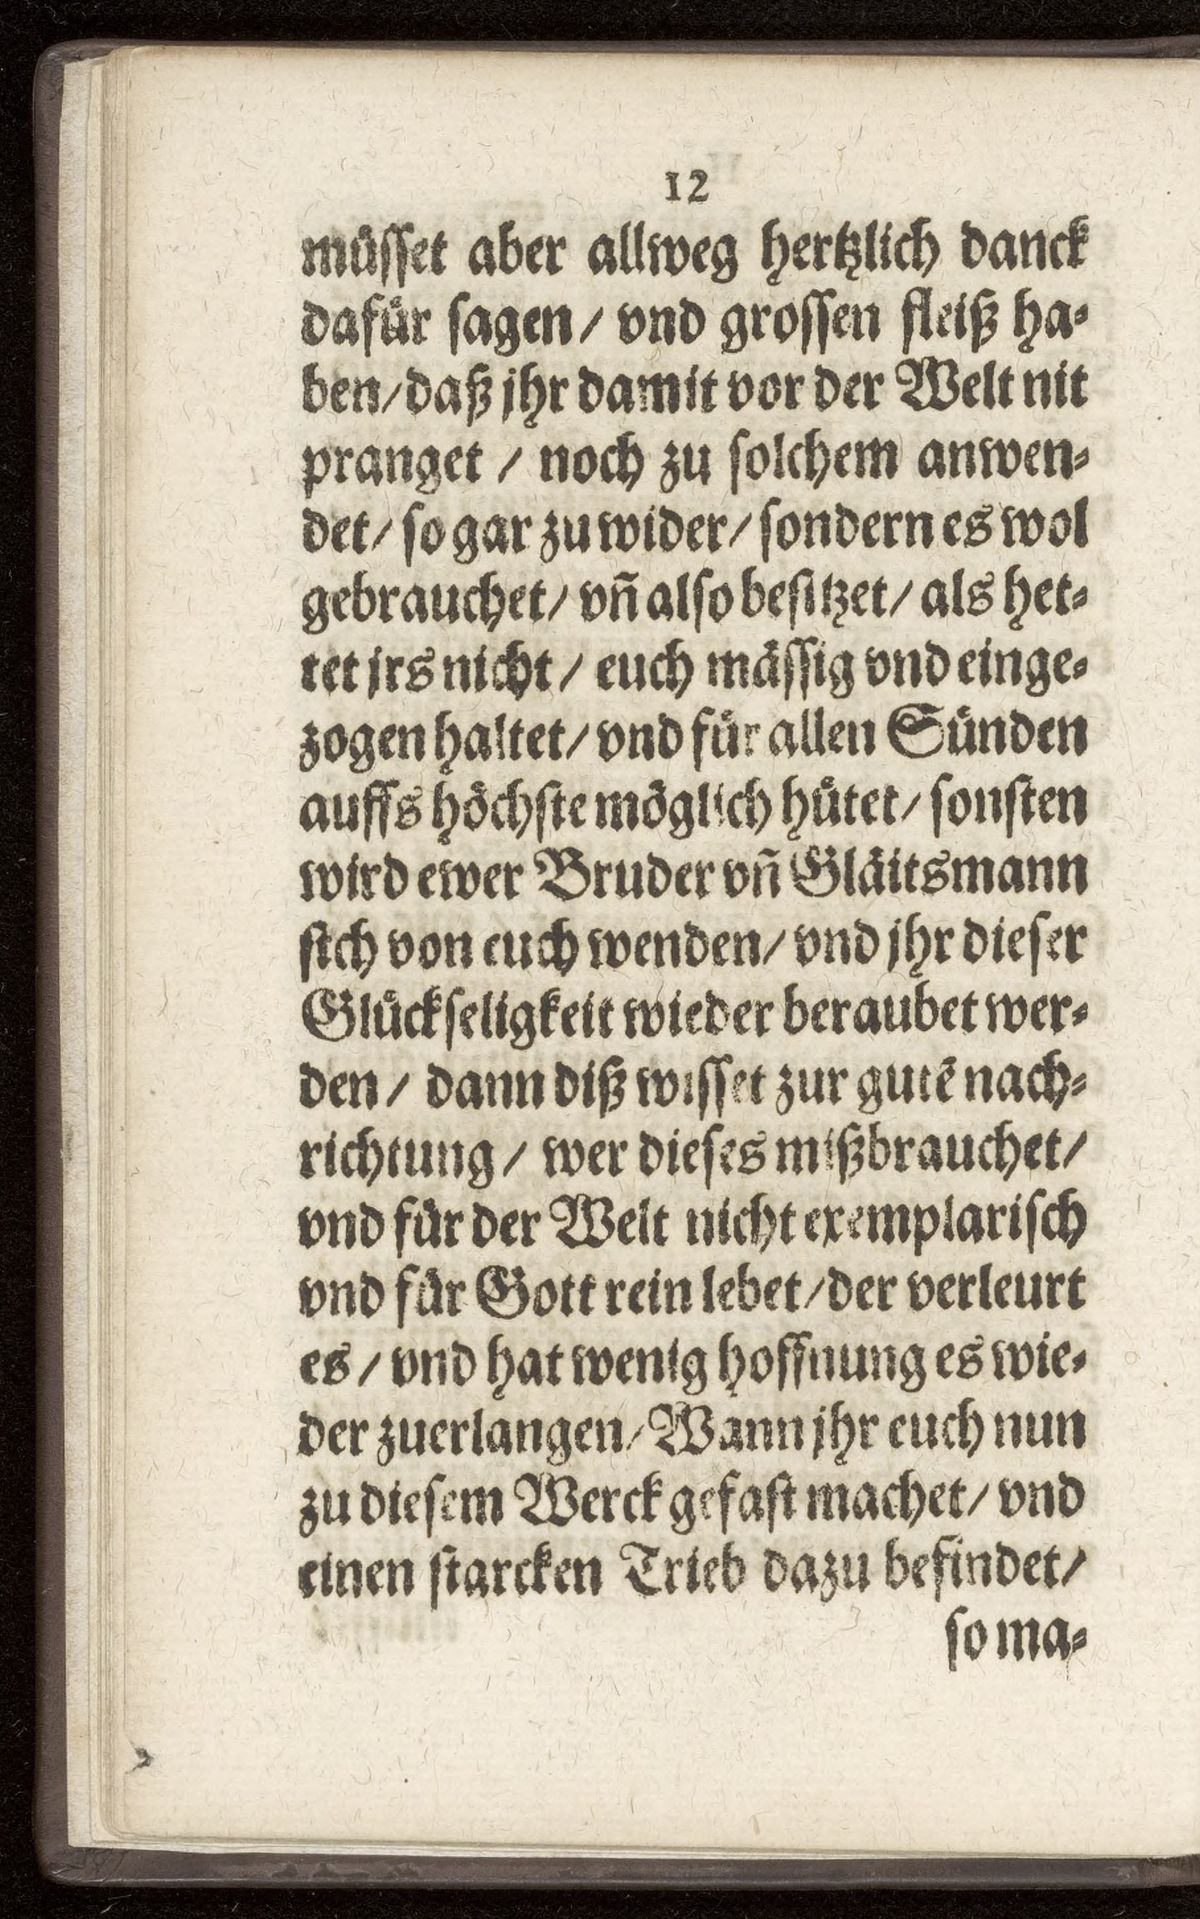 12
müsset aber allweg hertzlich danck
dafür sagen/ vnd grossen fleiß ha-
ben/daß jhr damit vor der Welt nit
pranget / noch zu solchem anwen-
det/ so gar zu wider/ sondern es wol
gebrauchet/ vñ also besitzet/ als het-
tet jrs nicht / euch mässig vnd einge-
zogen haltet/ vnd für allen Sünden
auffs höchste möglich hütet/ sonsten
wird ewer Bruder vñ Gläitsmann
sich von euch wenden/ vnd jhr dieser
Glückseligkeit wieder beraubet wer-
den / dann diß wisset zur gutē nach-
richtung / wer dieses mißbrauchet/
vnd für der Welt nicht exemplarisch
vnd für Gott rein lebet/der verleurt
es / vnd hat wenig hoffnung es wie-
der zuerlangen/ Wann jhr euch nun
zu diesem Werck gefast machet/ vnd
einen starcken Trieb dazu befindet/
so ma-